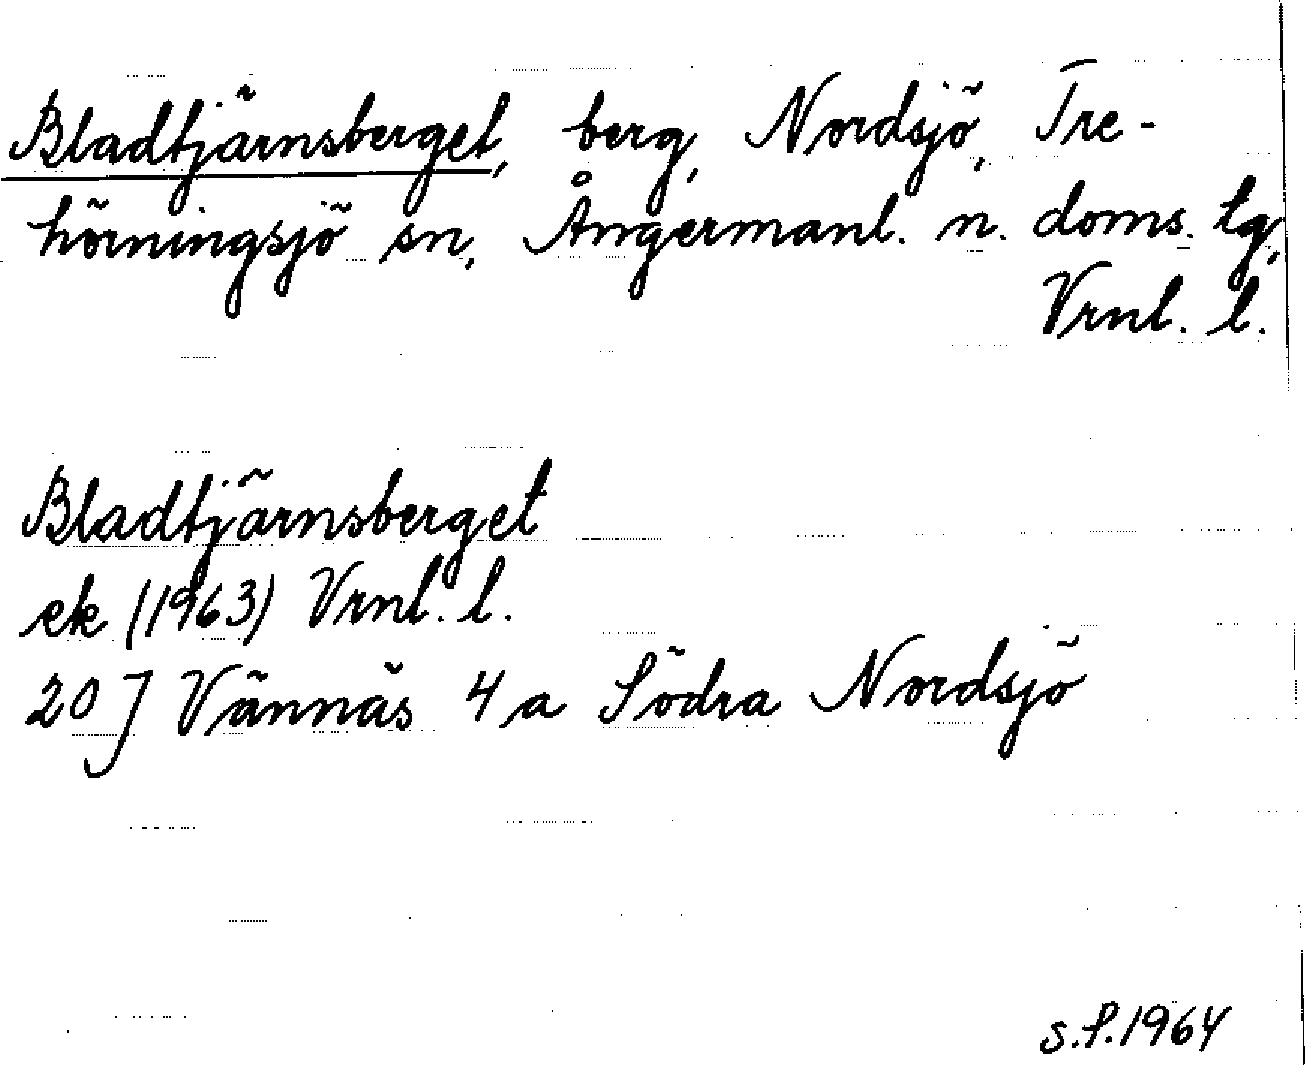 Bladtjärnsberget, berg, Nordsjö, Tre-
hörningsjö sn, Ångermanl. n. doms. lg,
Vrnl. l.
Bladtjärnsberget
ek (1963) Vrnl. l.
20 J Vännäs 4 a Södra Nordsjö
s.f. 1964